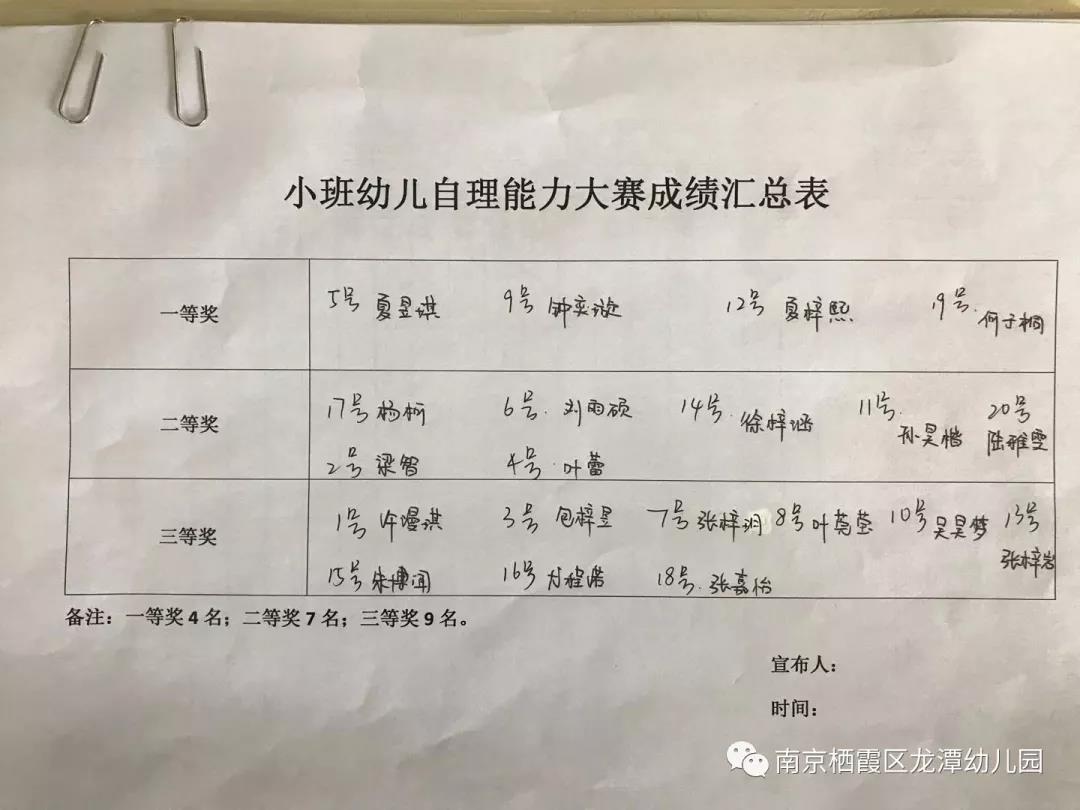 小班幼儿自理能力大赛成绩汇总表
一等奖 5号 夏昱琪 9号 钟奕璇 12号 夏梓熙 19号 何子桐
二等奖 17号 杨柯 6号 刘雨硕 14号 徐梓涵 11号 孙昊楷 20号 陆雅雯
2号 梁智 4号 叶蕾
三等奖 1号 许馒琪 3号 包梓昱 7号 张梓玥 8号 叶莞莹 10号 吴昊梦 13号 张梓岩
15号 朱博闻 16号 程诺 18号 张嘉怡
备注：一等奖4名；二等奖7名；三等奖9名。
宣布人：
时间：
南京栖霞区龙潭幼儿园